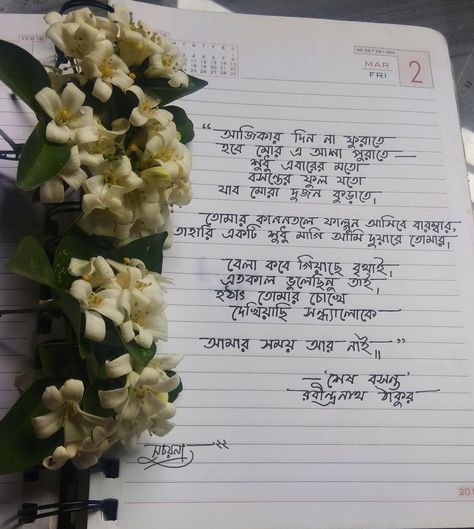 FEB
WK 09 / 061-304
MAR
FRI
2
“ আজিকার দিন না ফুরাতে
হবে মোর এ আশা পুরাতে —
শুধু এবারের মতো
বসন্তের ফুল যতো
যাব মোরা দুজন কুড়াতে।
তোমার কাননতলে ফাল্গুন আসিবে বারম্বার,
তাহারি একটি শুধু মাগি আমি দুয়ারে তোমার।
বেলা কবে গিয়াছে বৃথাই।
এতকাল ভুলেছিনু তাই,
হঠাৎ তোমার চোখে
দেখিয়াছি সন্ধ্যালোকে —
আমার সময় আর নাই।॥ ”
— ‘শেষ বসন্ত’
রবীন্দ্রনাথ ঠাকুর
সুচয়না ২২